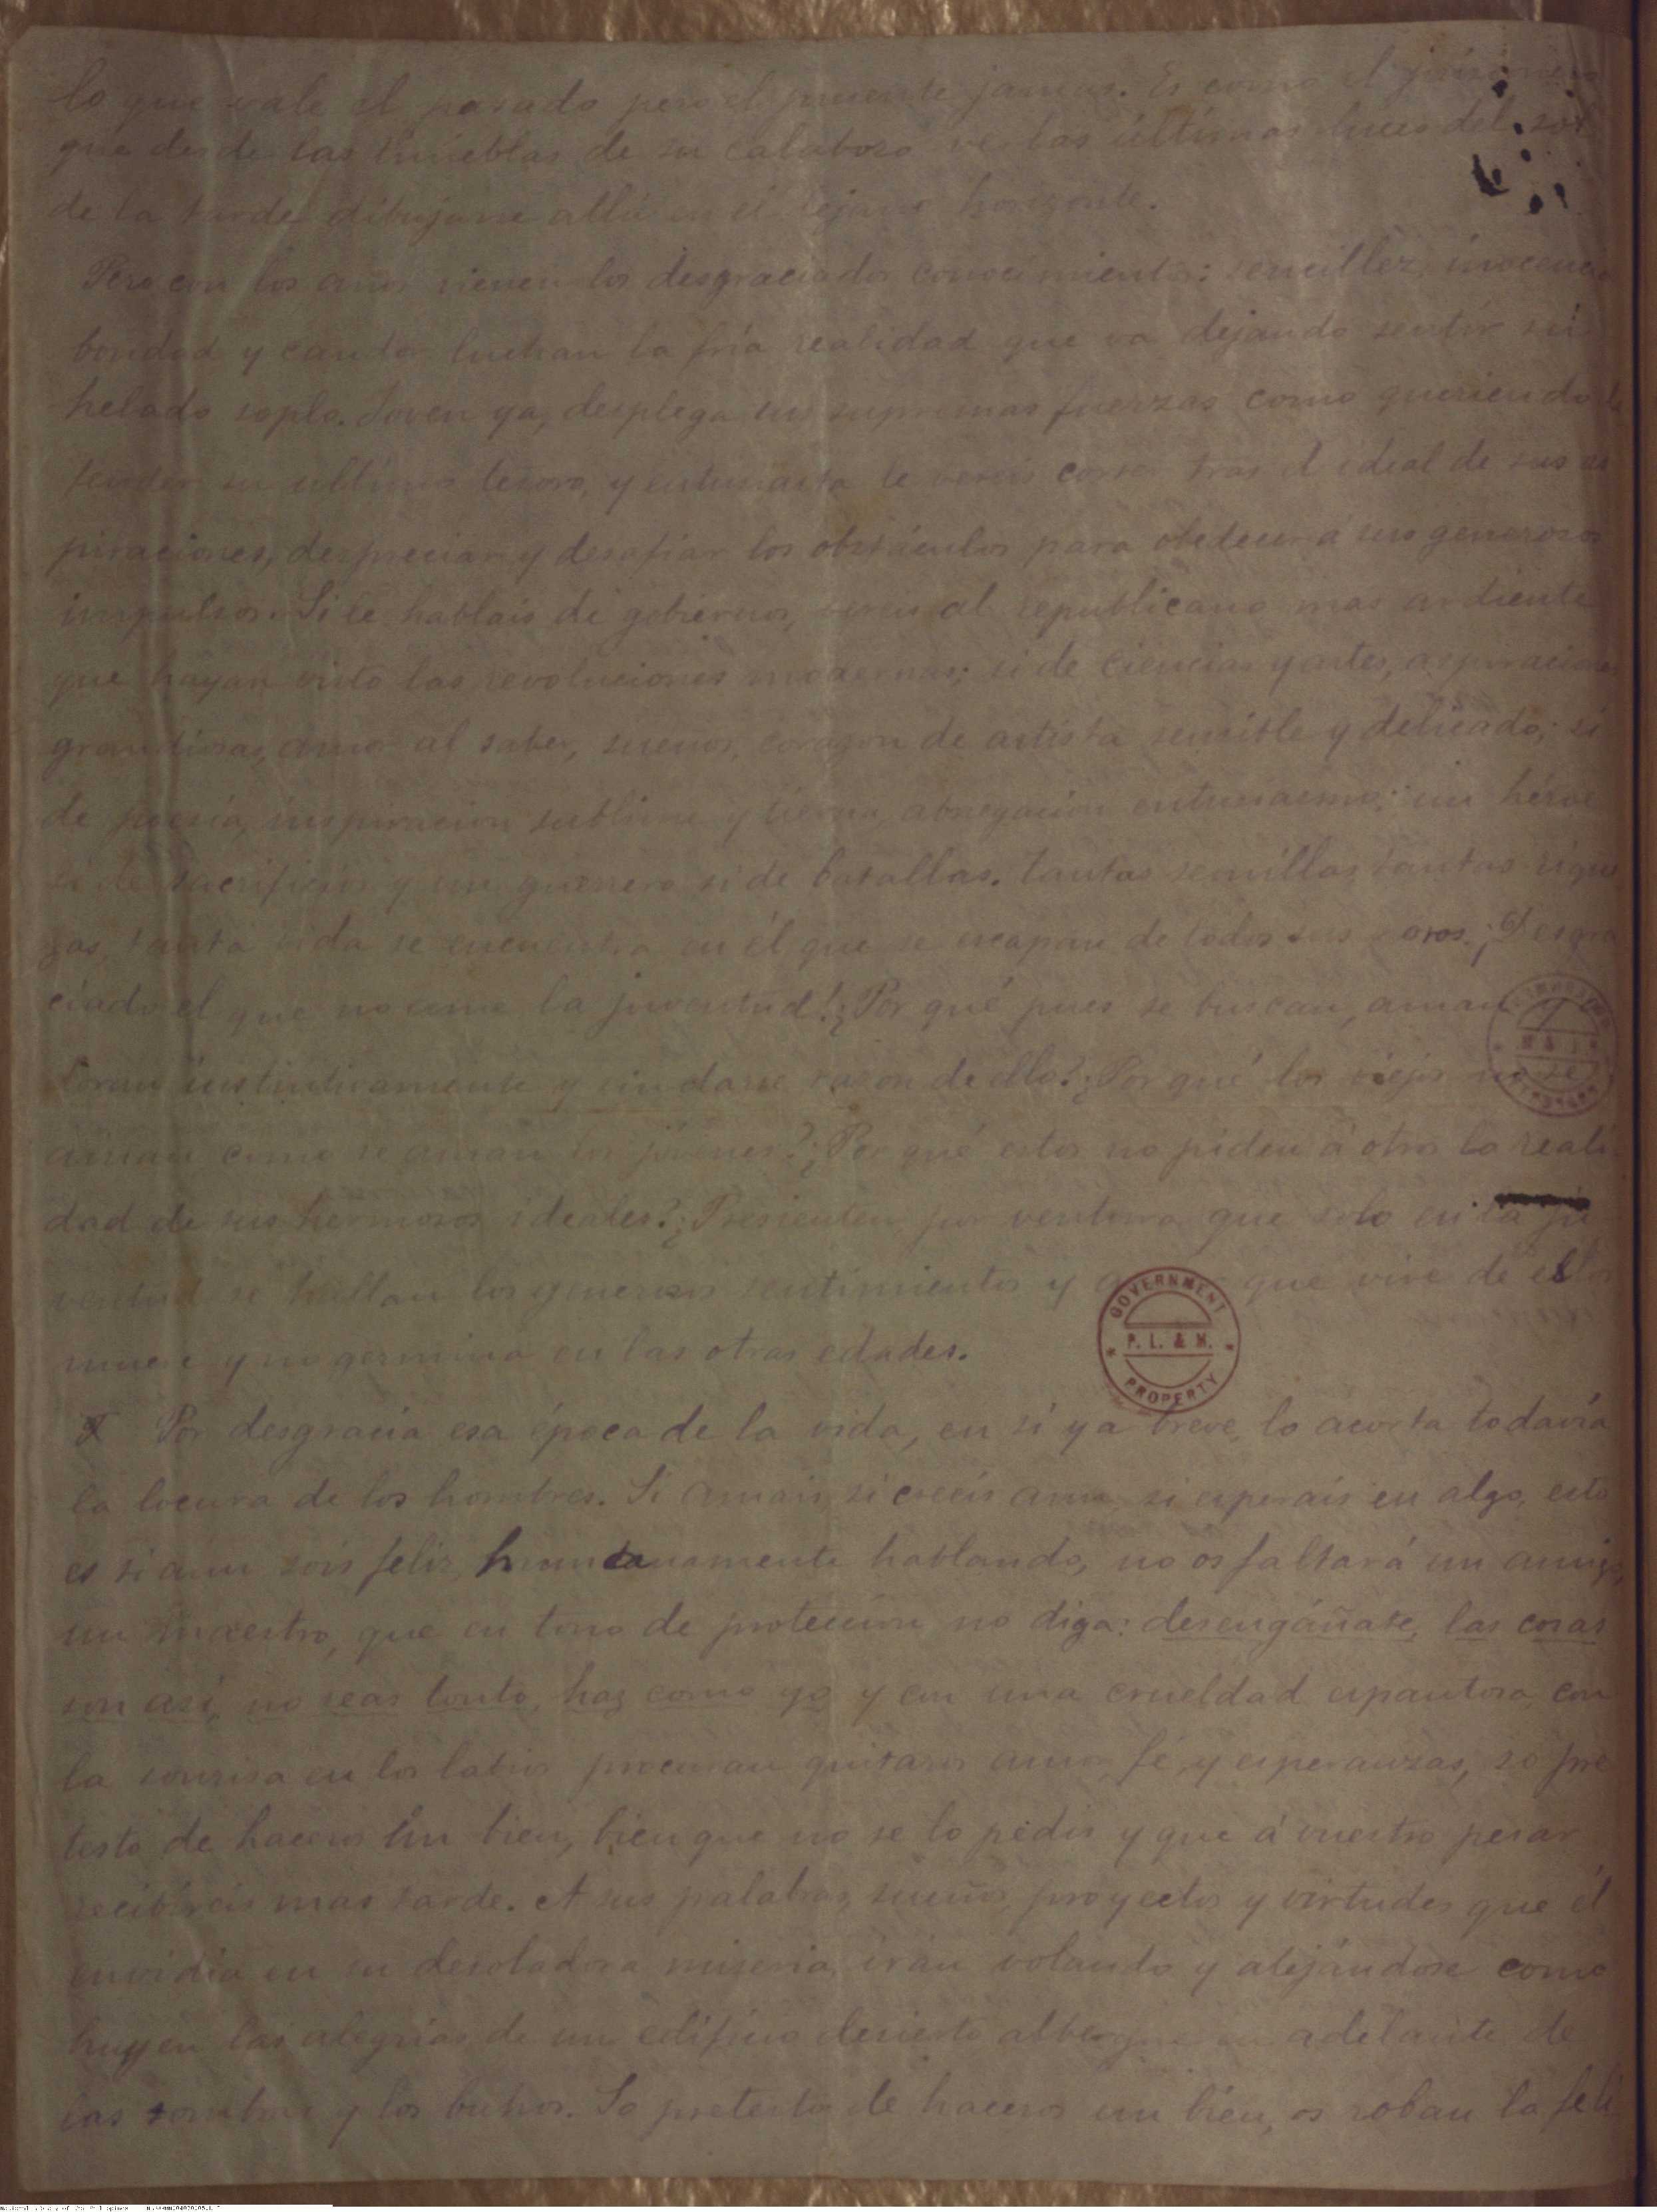 lo que vale el pasado pero el presente jamas. Es como el prisionero
que desde las tinieblas de su calabozo ve las últimas luces del sol
de la tarde dibujarse allá en el lejano horizonte.
Pero con los años vienen los desgraciados conocimientos: sencillez, inocencia
bondad y candor luchan la fría realidad que va dejando sentir su
helado soplo. Joven ya, desplega sus supremas fuerzas como queriendo
tender su ultimo tesoro, y entusiasta le vereis correr tras el ideal de sus as
piraciones, despreciar y desafiar los obstáculos para obedecer á sus generosos
impulsos. Si le hablais de gobiernos, vereis al republicano mas ardiente
que hayan visto las revoluciones modernas; si de ciencias y artes, aspiraciones
grandiosas, amor al saber, sueños, corazon de artista sensible y delicado; si
de poesía, inspiracion sublime y tierna, abnegacion entusiasmo; un héroe
si de sacrificios y un guerrero si de batallas. Tantas semillas, tantas rique
zas, tanta vida se encuentra en él que se escapan de todos sus poros. ¡Desgra
ciado el que no ama la juventud! ¿Por qué pues se buscan, aman y
lloran instintivamente y sin darse razon de ello? ¿Por qué los viejos no se
aman como se aman los jóvenes? ¿Por qué estos no piden á otros la reali
dad de sus hermosos ideales? ¿Presienten por ventura que solo en la ju
ventud se hallan los generosos sentimientos y que vive de ellos
muere y no germina en las otras edades.
Por desgracia esa época de la vida, en sí ya breve, lo acorta todavía
la locura de los hombres. Si amais, si creeis aun, si esperais en algo, esto
es si aun sois feliz, humanamente hablando, no os faltará un amigo,
un maestro, que en tono de proteccion no diga: desengáñate, las cosas
son así, no seas tonto, haz como yo y con una crueldad espantosa, con
la sonrisa en los labios procuran quitaros amor, fé, y esperanzas, so pre
testo de haceros un bien, bien que no se lo pedis y que á vuestro pesar
recibireis mas tarde. A sus palabras, sueños, proyectos y virtudes que él
envidia en su desoladora miseria, irán volando y alejándose como
huyen las alegrias de un edificio desierto albergue en adelante de
las sombras y los buhos. So pretesto de haceros un bien, os roban la feli
GOVERNMENT
P. L. & M.
PROPERTY